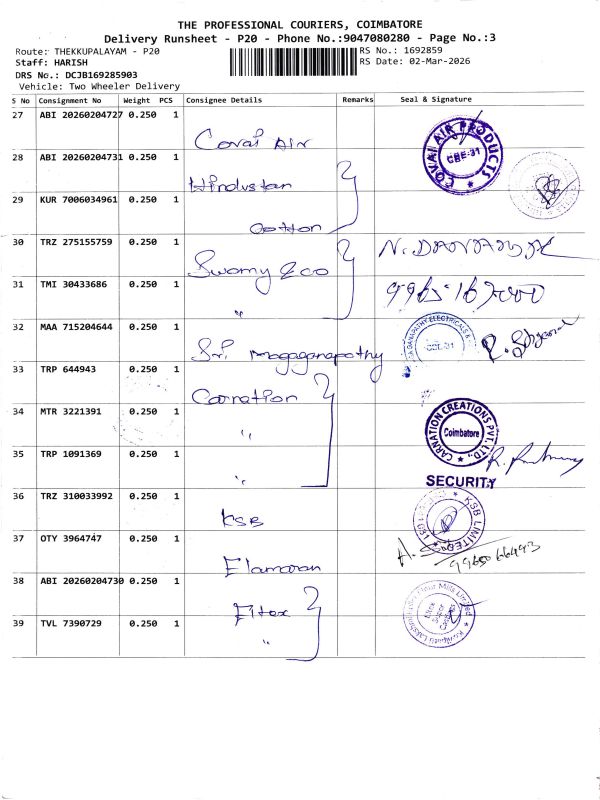 THE PROFESSIONAL COURIERS, COIMBATORE
Delivery Runsheet - P20 - Phone No.:9047080280 - Page No.:3
Route: THEKKUPALAYAM - P20
RS No.: 1692859
Staff: HARISH
RS Date: 02-Mar-2026
DRS No.: DCJB169285903
Vehicle: Two Wheeler Delivery
S No Consignment No Weight PCS Consignee Details Remarks Seal & Signature
27 ABI 20260204727 0.250 1
Covai Air
COVAI AIR PRODUCTS
CBE-31
28 ABI 20260204731 0.250 1
Hindustan
29 KUR 7006034961 0.250 1
Cotton
30 TRZ 275155759 0.250 1
Swamy & co
31 TMI 30433686 0.250 1
"
32 MAA 715204644 0.250 1
Sri Magaganapathy
GANAPATHY ELECTRICALS
CBE-31
33 TRP 644943 0.250 1
Carnation
34 MTR 3221391 0.250 1
"
CARNATION CREATIONS PVT. LTD.,
Coimbatore
35 TRP 1091369 0.250 1
"
SECURITY
36 TRZ 310033992 0.250 1
KSB
KSB LIMITED
37 OTY 3964747 0.250 1
Elamaran
9965066493
38 ABI 20260204730 0.250 1
Eltex
Flour Mills Limited
39 TVL 7390729 0.250 1
"